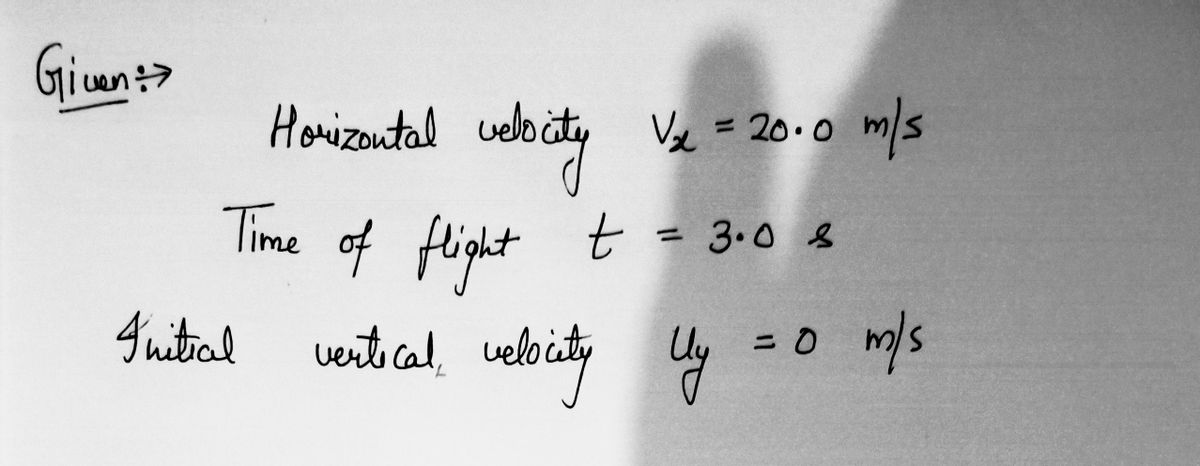 Given:→
Horizontal velocity Vx = 20.0 m/s
Time of flight t = 3.0 s
Initial vertical, velocity Uy = 0 m/s